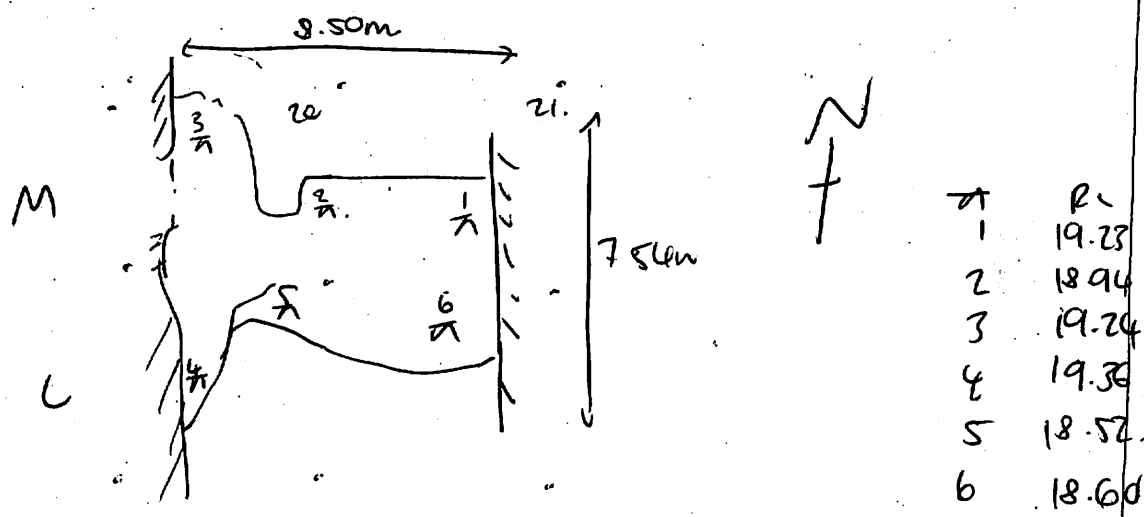 8.50m
20 21.
N
3
M 2 1
7 54m
5 6
L 4
RL
1 19.23
2 18.94
3 19.24
4 19.36
5 18.52.
6 18.60